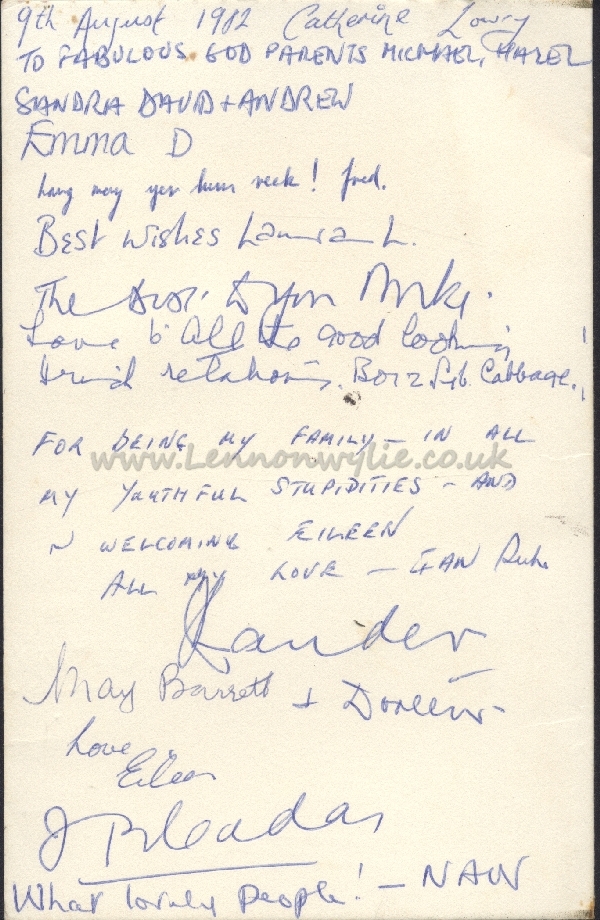 9th August 1982 Catherine Lowry
TO FABULOUS GOD PARENTS MICHAEL, HAZEL
SANDRA DAVID + ANDREW
Emma D
Lang may yer lum reek! fred.
Best Wishes Laura L.
The
Love to all the good looking
Irish relations. Cabbage.
FOR BEING MY FAMILY – IN ALL
www.Lennonwylie.co.uk
MY YOUTHFUL STUPIDITIES – AND
IN WELCOMING EILEEN
ALL MY LOVE – IAN
Xander
May Barrett + Doreen
Love
Eileen
J
What lovely people! – NAW